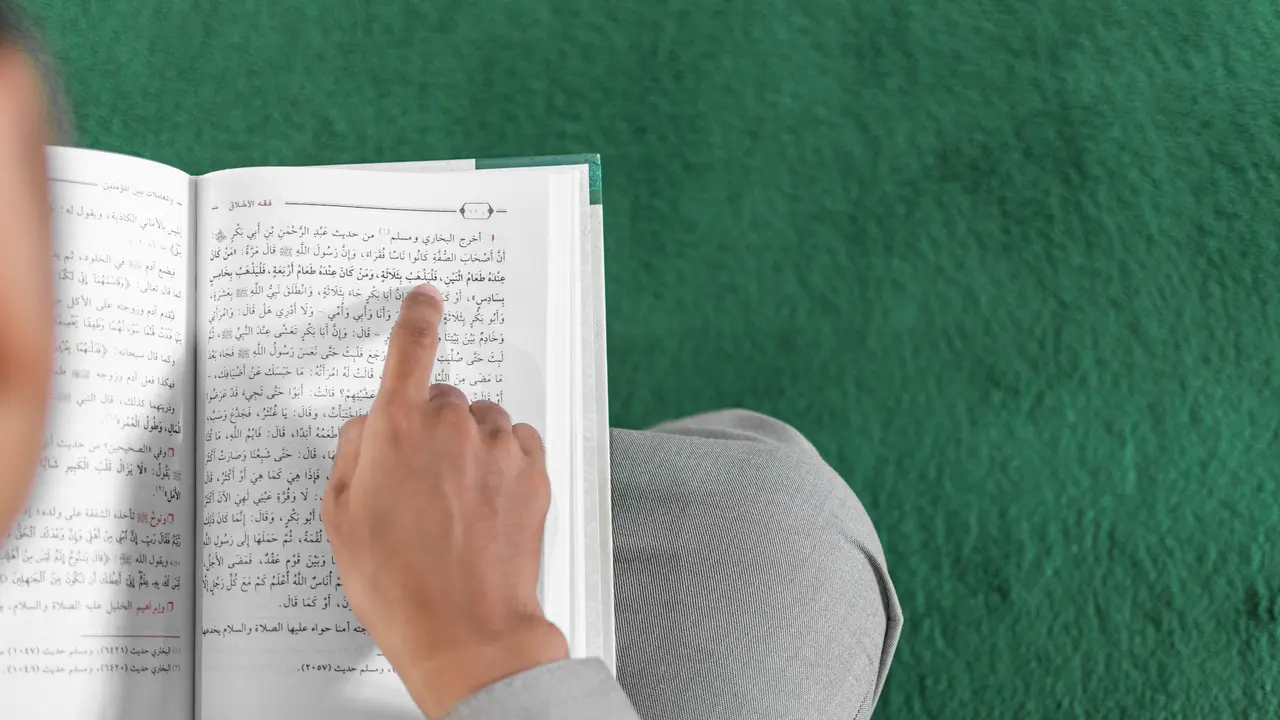 ١١٠ فقه الأخلاق
أخرج البخاري ومسلم(١) من حديث عَبْدِ الرَّحْمَنِ بْنِ أَبِي بَكْرٍ :
أَنَّ أَصْحَابَ الصُّفَّةِ كَانُوا نَاسًا فُقَرَاءَ، وَإِنَّ رَسُولَ اللَّهِ ﷺ قَالَ مَرَّةً: «مَنْ كَانَ
عِنْدَهُ طَعَامُ اثْنَيْنِ، فَلْيَذْهَبْ بِثَلَاثَةٍ، وَمَنْ كَانَ عِنْدَهُ طَعَامُ أَرْبَعَةٍ، فَلْيَذْهَبْ بِخَامِسٍ
بِسَادِسٍ»، أَوْ إِنَّ أَبَا بَكْرٍ جَاءَ بِثَلَاثَةٍ، وَانْطَلَقَ نَبِيُّ اللَّهِ ﷺ بِعَشَرَةٍ،
وَأَبُو بَكْرٍ بِثَلَاثَةٍ وَأَنَا وَأَبِي وَأُمِّي - وَلَا أَدْرِي هَلْ قَالَ: وَامْرَأَتِي
وَخَادِمٌ بَيْنَ بَيْتِنَا - قَالَ: وَإِنَّ أَبَا بَكْرٍ تَعَشَّى عِنْدَ النَّبِيِّ ﷺ، ثُمَّ
لَبِثَ حَتَّى صُلِّيَتِ رَجَعَ فَلَبِثَ حَتَّى نَعَسَ رَسُولُ اللَّهِ ﷺ فَجَاءَ بَعْدَ
مَا مَضَى مِنَ اللَّيْلِ قَالَتْ لَهُ امْرَأَتُهُ: مَا حَبَسَكَ عَنْ أَضْيَافِكَ، -
أَوْ قَالَتْ عَشَّيْتِهِمْ؟ قَالَتْ: أَبَوْا حَتَّى تَجِيءَ قَدْ عَرَضُوا
فَاخْتَبَأْتُ، وَقَالَ: يَا غُنْثَرُ، فَجَدَّعَ وَسَبَّ،
أَطْعَمُهُ أَبَدًا، قَالَ: فَايْمُ اللَّهِ، مَا كُنَّا
قَالَ: حَتَّى شَبِعْنَا وَصَارَتْ أَكْثَرَ
فَإِذَا هِيَ كَمَا هِيَ أَوْ أَكْثَرُ، قَالَ
لَا وَقُرَّةِ عَيْنِي لَهِيَ الْآنَ أَكْثَرُ
أَبُو بَكْرٍ، وَقَالَ: إِنَّمَا كَانَ ذَلِكَ
لُقْمَةً، ثُمَّ حَمَلَهَا إِلَى رَسُولِ اللَّهِ
وَبَيْنَ قَوْمٍ عَقْدٌ، فَمَضَى الْأَجَلُ
أُنَاسٌ اللَّهُ أَعْلَمُ كَمْ مَعَ كُلِّ رَجُلٍ
أَوْ كَمَا قَالَ.
أمنا حواء عليها الصلاة والسلام يخدعها
، ومسلم حديث (٢٠٥٧).
والمعاملات بين المؤمنين
بالأماني الكاذبة، ويقول له:
فيطمع آدم ﷺ في الخلود، ثم
كما قال تعالى: ﴿وَقَاسَمَهُمَا إِنِّي لَكُمَا
فيُقدم آدم وزوجته على الأكل
وكما قال سبحانه: ﴿فَدَلَّاهُمَا بِغُرُورٍ
فهكذا فعل آدم وزوجه
وذريتهما كذلك، قال النبي ﷺ
الْمَالِ، وَطُولُ الْعُمُرِ»(١).
وفي «الصحيحين» من حديث
يَقُولُ: «لَا يَزَالُ قَلْبُ الْكَبِيرِ شَابًّا
الْأَمَلِ»(٢).
ونوحٌ ﷺ تأخذه الشفقة على ولده؛
رَبَّهُ فَقَالَ رَبِّ إِنَّ ابْنِي مِنْ أَهْلِي وَإِنَّ وَعْدَكَ الْحَقُّ
ويقول الله: ﴿قَالَ يَا نُوحُ إِنَّهُ لَيْسَ مِنْ أَهْلِكَ
لَيْسَ لَكَ بِهِ عِلْمٌ إِنِّي أَعِظُكَ أَنْ تَكُونَ مِنَ الْجَاهِلِينَ
وإبراهيم الخليل عليه الصلاة والسلام،
(١) البخاري حديث (٦٤٢١)، ومسلم حديث (١٠٤٧)
(٢) البخاري حديث (٦٤٢٠)، ومسلم حديث (١٠٤٦).